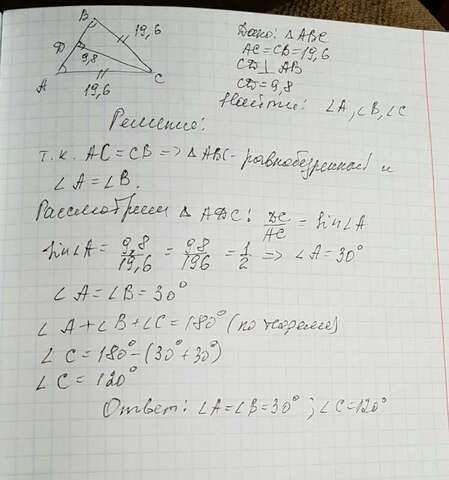 B
19,6
D
9,8
A
C
19,6
Дано: △ABC
AC=CB=19,6
CD⊥AB
CD=9,8
Найти: ∠A,∠B,∠C
Решение:
т.к. AC=CB=>△ABC-равнобедренный и
∠A=∠B.
Рассмотрим △ADC: DC/AC = sin∠A
sin∠A = 9,8/19,6 = 98/196 = 1/2 => ∠A=30°
∠A=∠B=30°
∠A+∠B+∠C=180° (по теореме)
∠C=180°-(30°+30°)
∠C=120°
Ответ: ∠A=∠B=30°; ∠C=120°